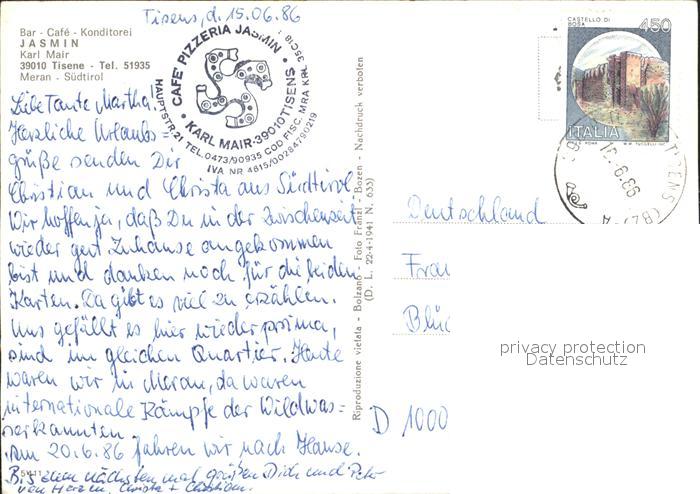 Tisens, d. 15.06.86
Bar - Café - Konditorei
JASMIN
Karl Mair
39010 Tisene - Tel. 51935
Meran - Südtirol
CAFE' PIZZERIA JASMIN
KARL MAIR-39010 TISENS
HAUPTSTR. 21 TEL. 0473/90935 COD. FISC. MRA KRL 35C18
IVA NR 4615/00284790219
CASTELLO DI BOSA
450
ITALIA
TISENS (BZ)
Liebe Tante Martha!
Herzliche Urlaubs=
grüße senden Dir
Christian und Christa aus Südtirol.
Wir hoffen ja, daß Du in der Zwischenzeit
wieder gut Zuhause angekommen
bist und danken noch für die beiden
Karten. Da gibt es viel zu erzählen.
Uns gefällt es hier wieder prima,
sind im gleichen Quartier. Heute
waren wir in Meran, da waren
internationale Kämpfe der Wildwas=
serkanuten.
Am 20.6.86 fahren wir nach Hause.
Bis zum nächsten mal grüßen Dich und Peter
von Herzen, Christa + Christian.
Riproduzione vietata - Bolzano - Foto Franzl - Bozen - Nachdruck verboten
(D. L. 22-4-1941 N. 633)
Deutschland
Frau
D 1000
privacy protection
Datenschutz